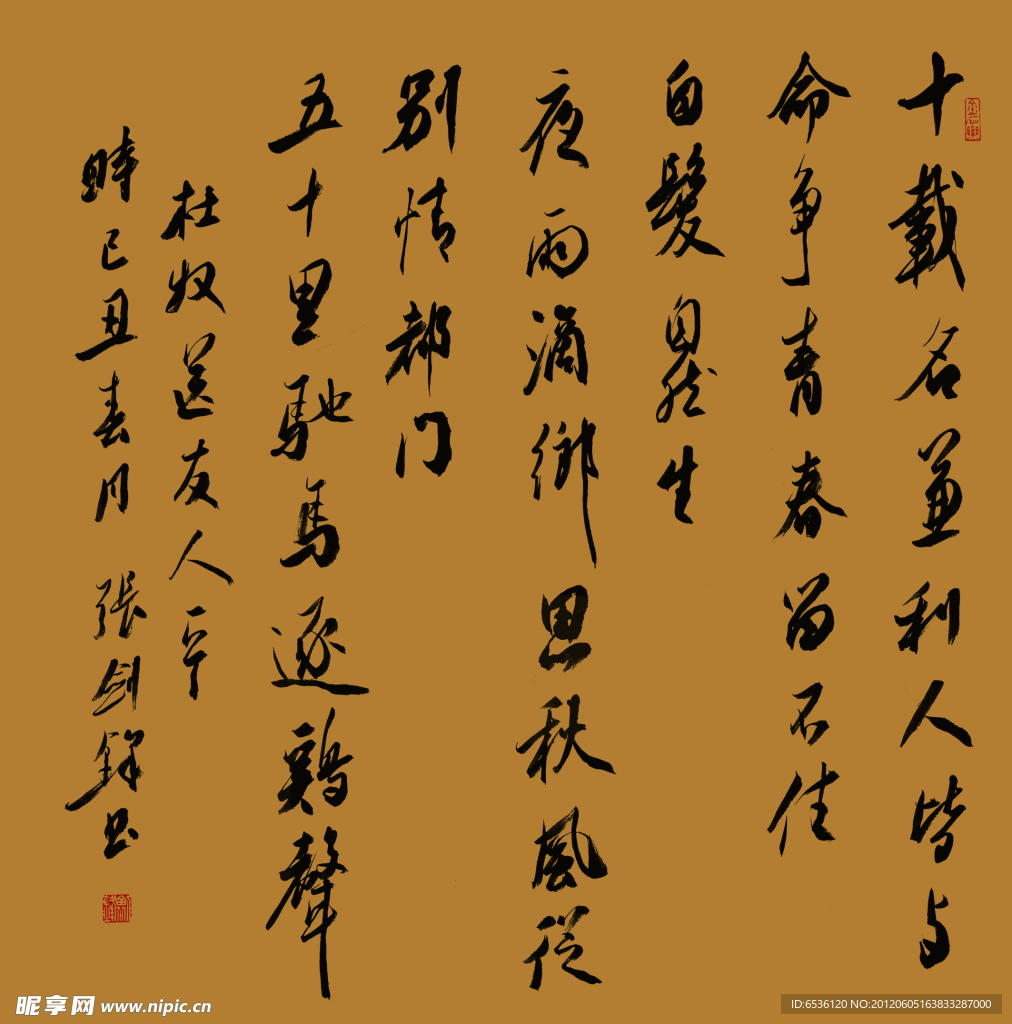 十載名兼利人皆与
命争青春留不住
白髮自然生
夜雨滴鄉思秋風從
别情都门
五十里馳馬逐鷄聲
杜牧送友人一
時己丑春月 張剑鋒书
昵享网 www.nipic.cn
ID:6536120 NO:20120605163833287000